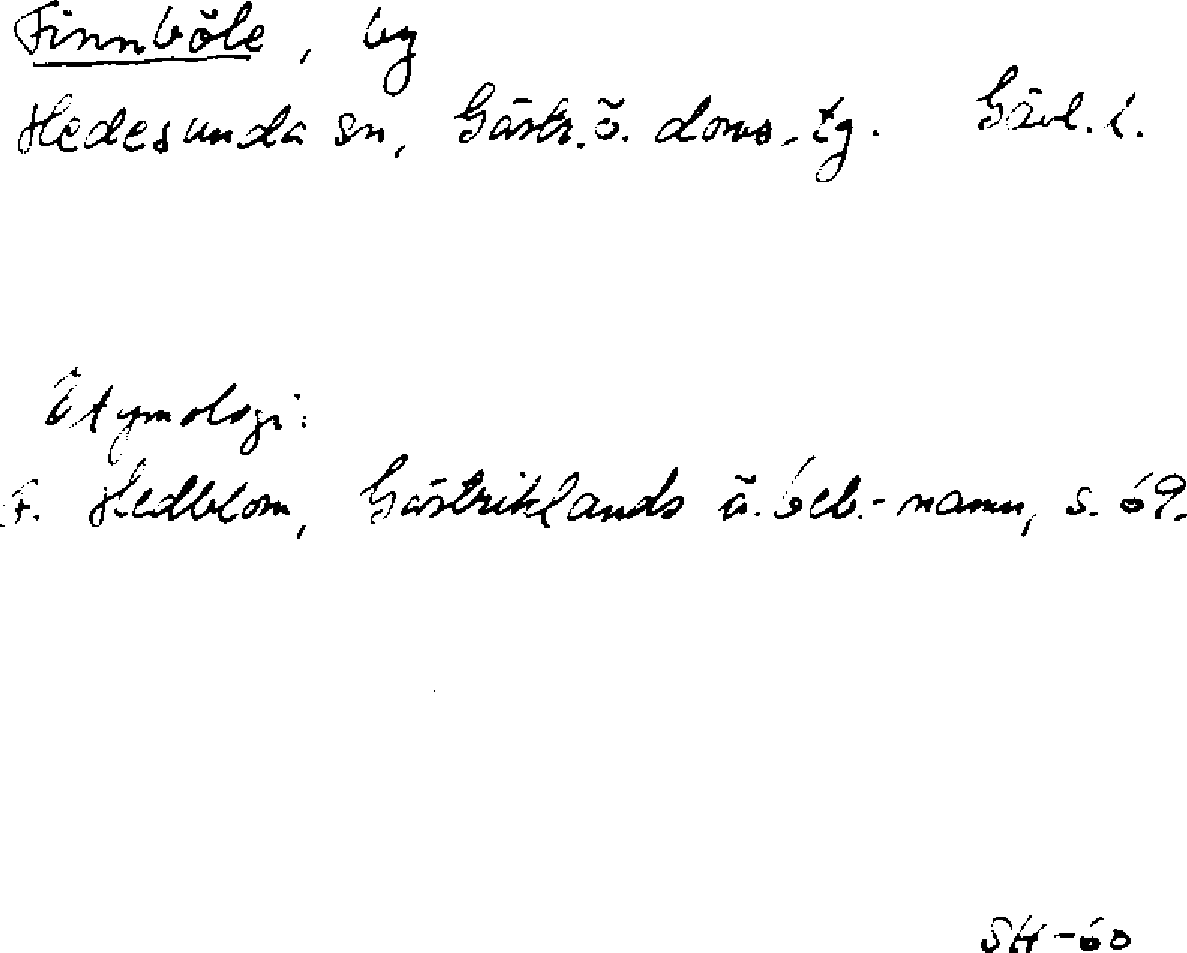 Finnböle, by
Hedesunda sn, Gästr. ö. doms.tg. Gävl. l.
Etymologi:
F. Hedblom, Gästriklands ä. beb.-namn, s. 69.
SH-60